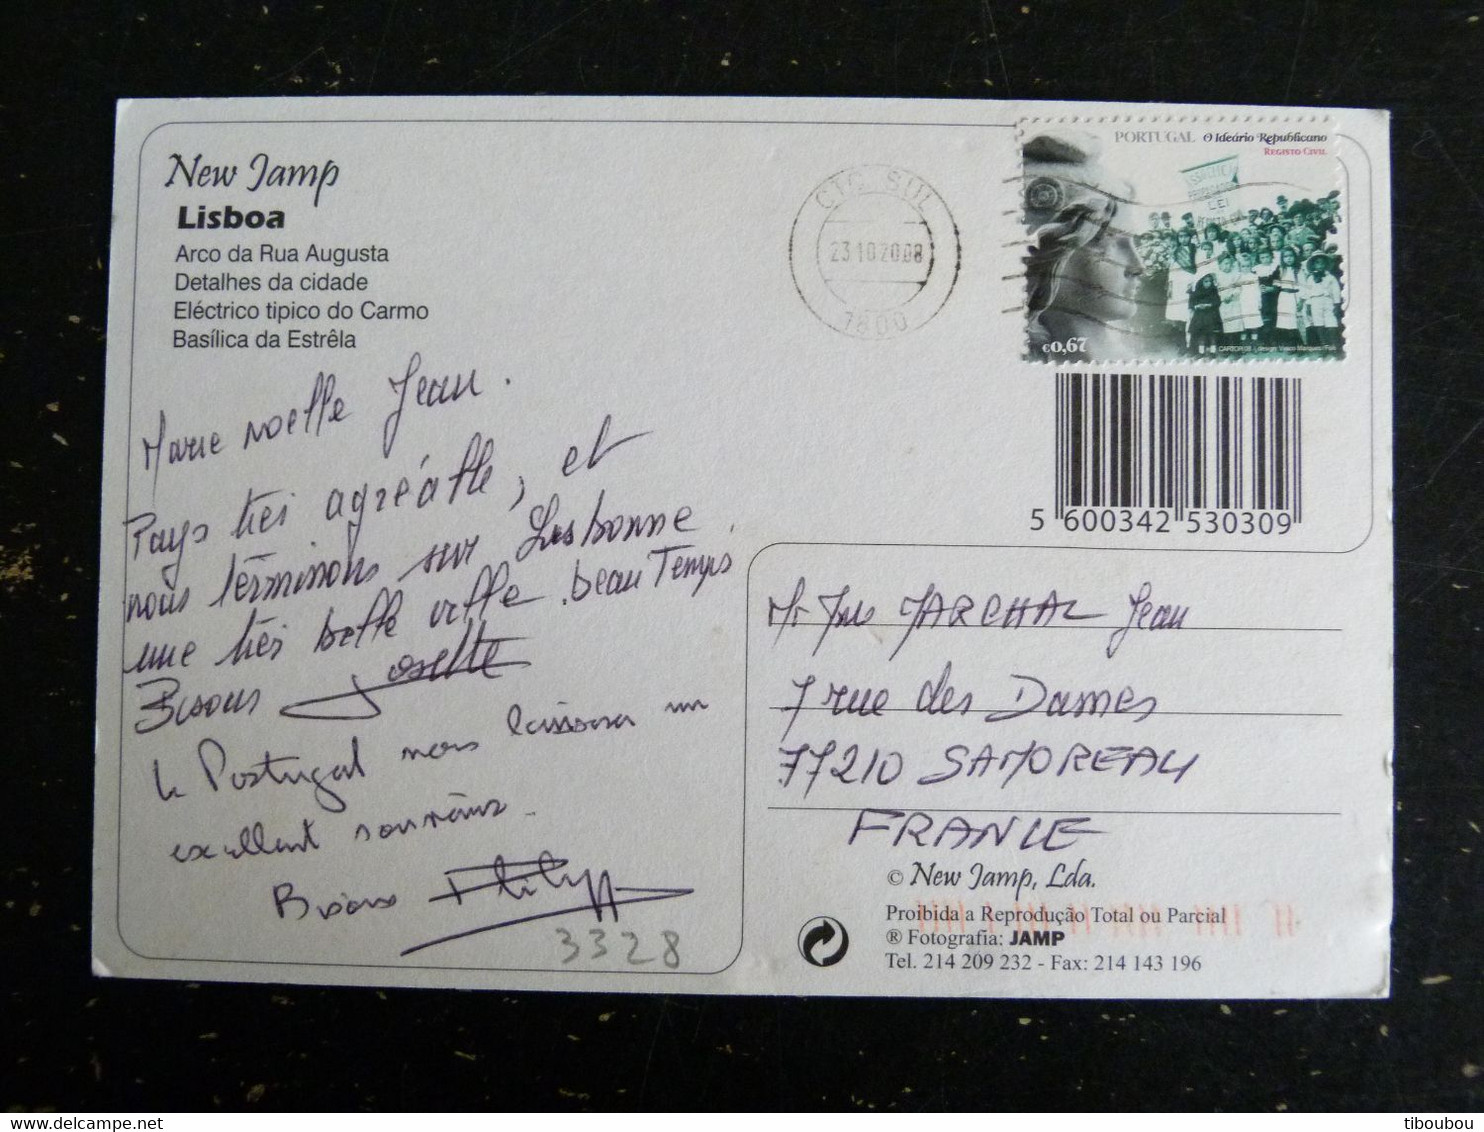 New Jamp
Lisboa
Arco da Rua Augusta
Detalhes da cidade
Eléctrico tipico do Carmo
Basílica da Estrêla
Marie noelle Jean.
Pays très agréable, et
nous terminons sur Lisbonne
une très belle ville. beau Temps
Bisous Josette
Le Portugal nous laissera un
excellent souvenir.
Bisous Philippe
3328
CTC SUL
23 10 2008
1800
PORTUGAL O Ideário Republicano
REGISTO CIVIL
LEI
€0,67
5 600342 530309
Mr Mme MARCHAL Jean
7 rue des Dames
77210 SAMOREAU
FRANCE
© New Jamp, Lda.
Proibida a Reprodução Total ou Parcial
® Fotografia: JAMP
Tel. 214 209 232 - Fax: 214 143 196
tiboubou